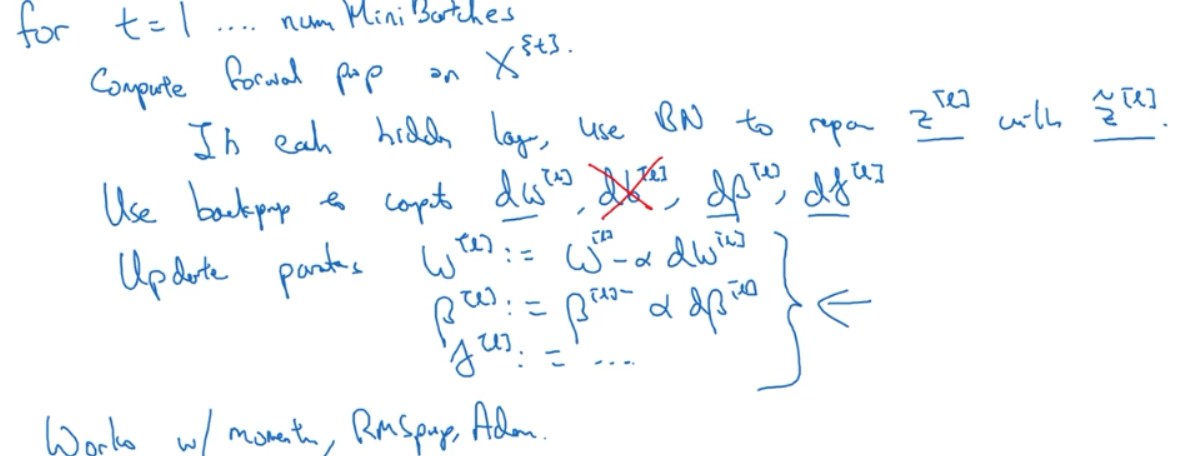 for t=1 .... num Mini Batches
Compute forwal prop on X^{t}.
In eah hidden lay, use BN to repan z^[l] with z̃^[l].
Use backprop to compt dw^[l], db^[l], dβ^[l], dγ^[l]
Update parts w^[l] := w^[l] - α dw^[l]
β^[l] := β^[l] - α dβ^[l]
γ^[l] := ....
Works w/ moment, RMSprop, Adam.